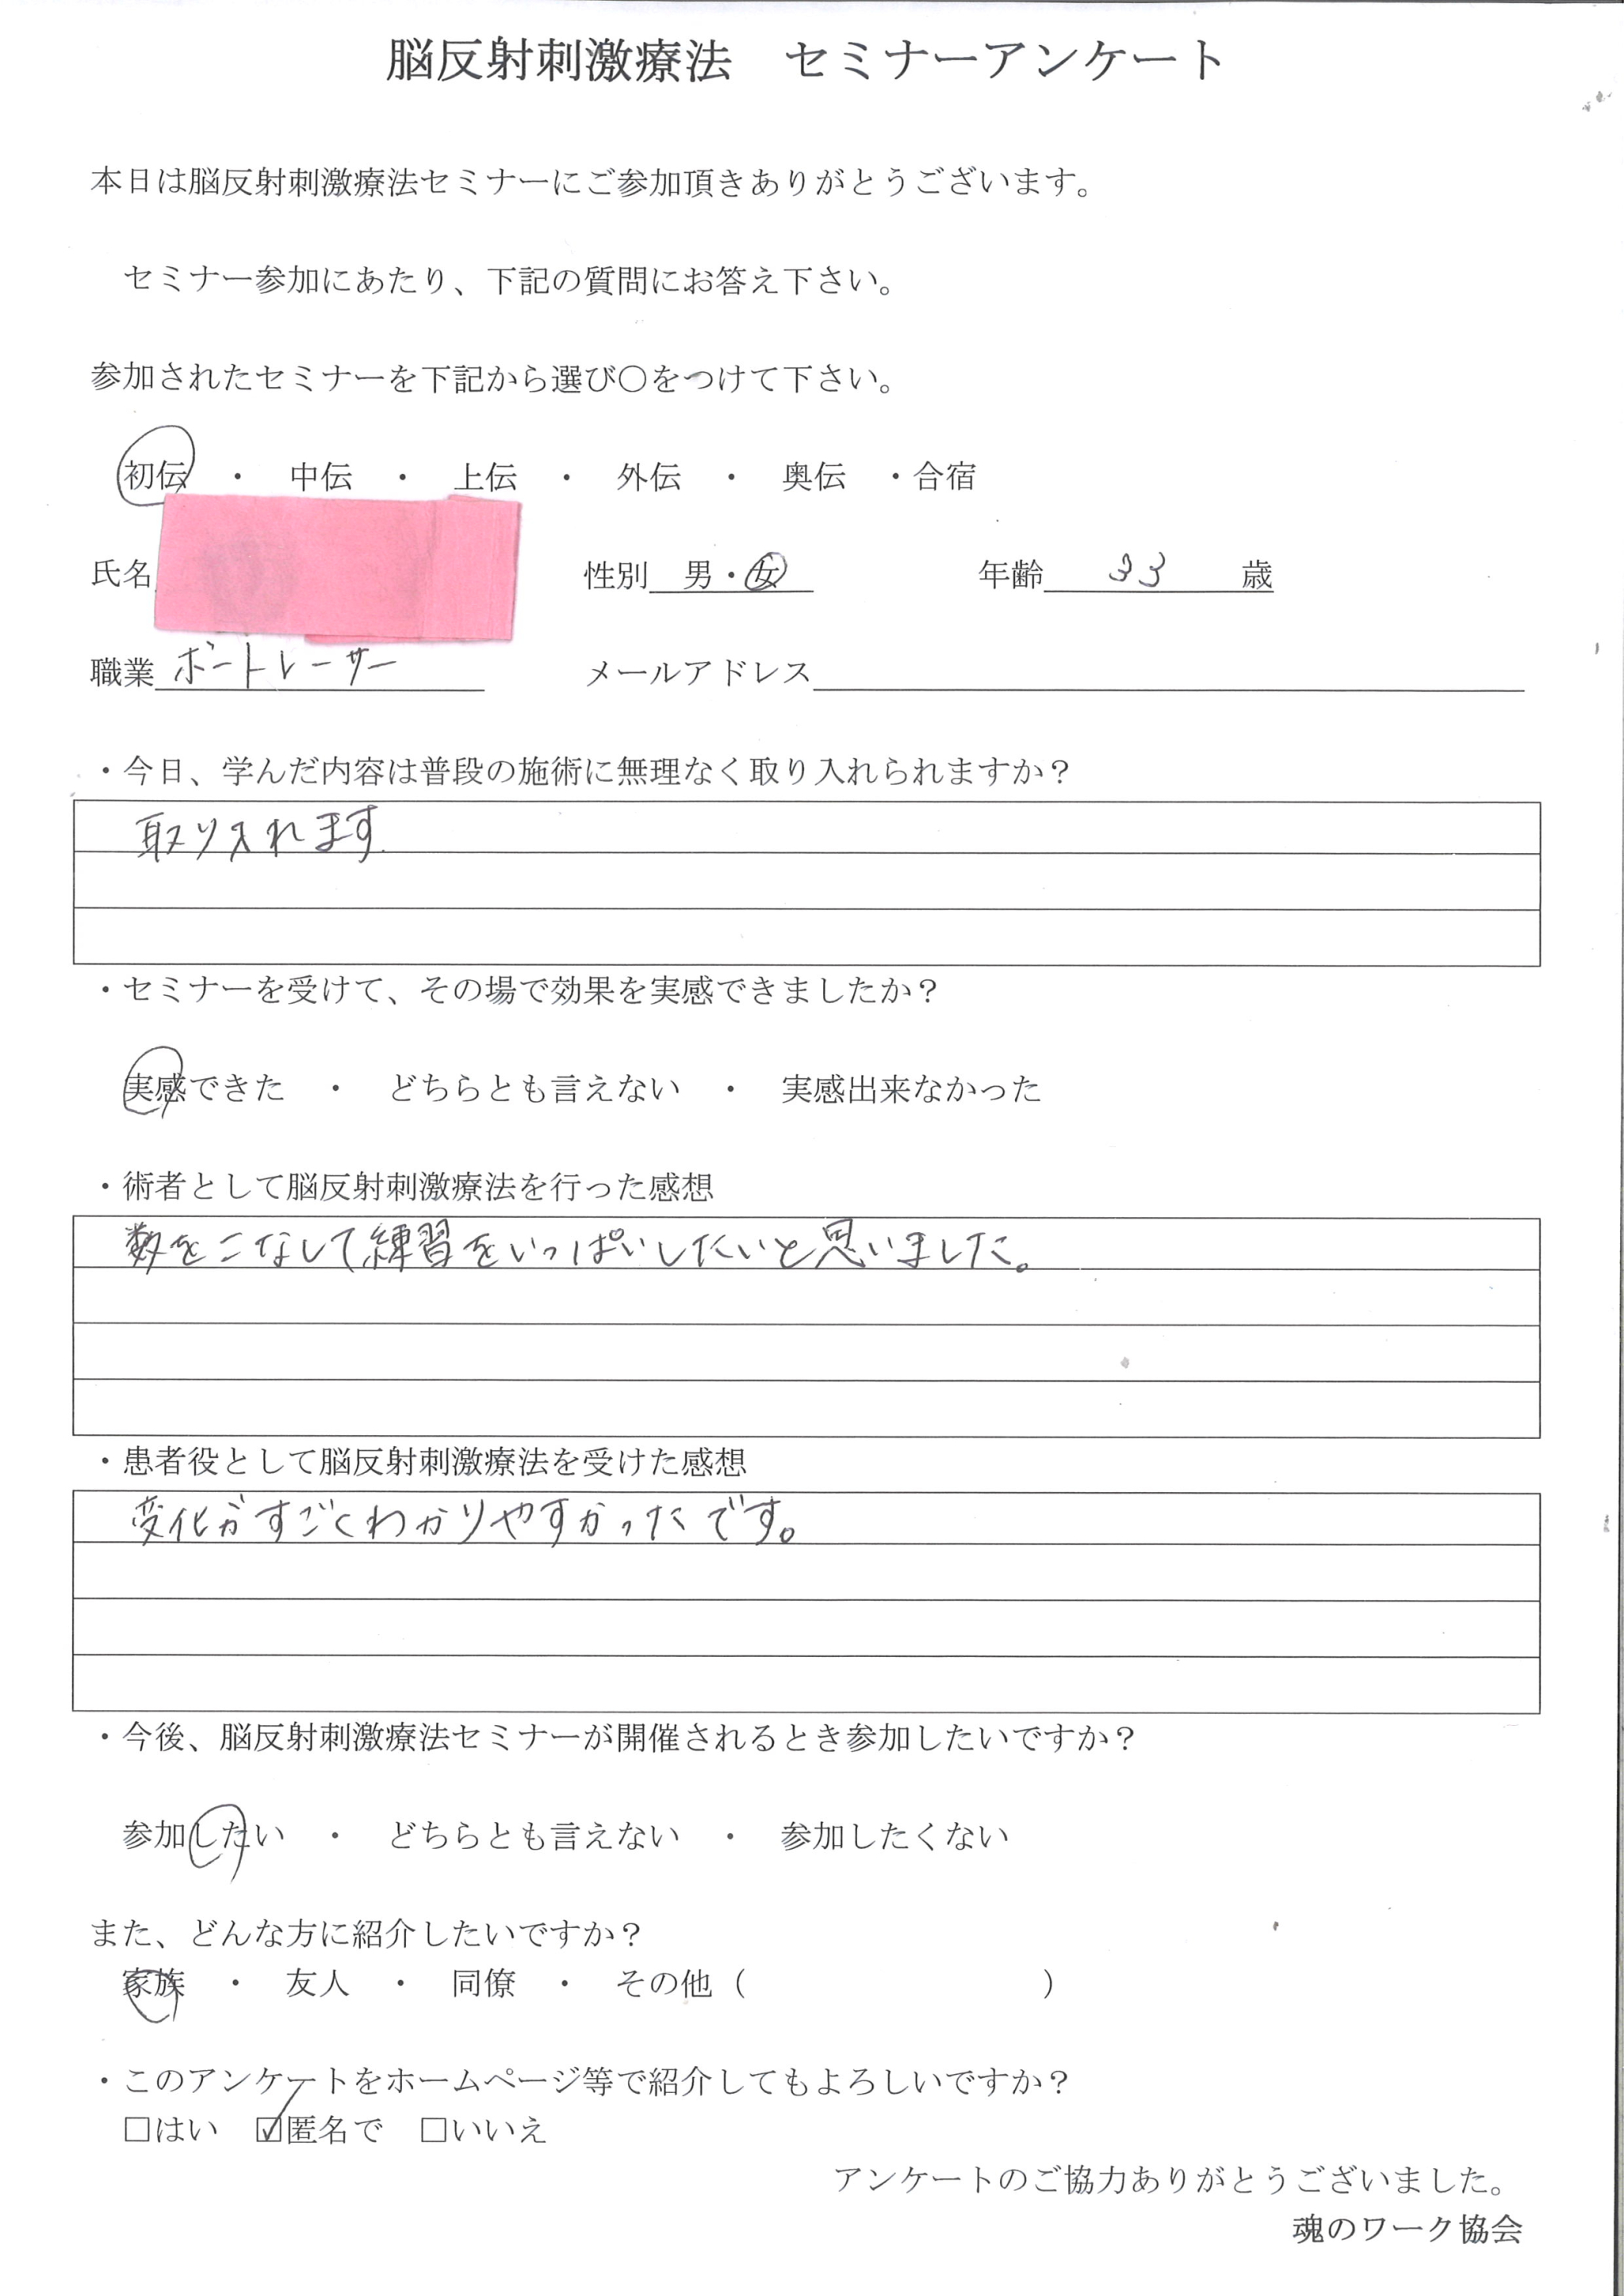 脳反射刺激療法　セミナーアンケート
本日は脳反射刺激療法セミナーにご参加頂きありがとうございます。
セミナー参加にあたり、下記の質問にお答え下さい。
参加されたセミナーを下記から選び〇をつけて下さい。
初伝　・　中伝　・　上伝　・　外伝　・　奥伝　・合宿
氏名　性別　男・女　年齢　33　歳
職業　ボートレーサー　メールアドレス
・今日、学んだ内容は普段の施術に無理なく取り入れられますか？
取り入れます
・セミナーを受けて、その場で効果を実感できましたか？
実感できた　・　どちらとも言えない　・　実感出来なかった
・術者として脳反射刺激療法を行った感想
数をこなして練習をいっぱいしたいと思いました。
・患者役として脳反射刺激療法を受けた感想
変化がすごくわかりやすかったです。
・今後、脳反射刺激療法セミナーが開催されるとき参加したいですか？
参加したい　・　どちらとも言えない　・　参加したくない
また、どんな方に紹介したいですか？
家族　・　友人　・　同僚　・　その他（　　　　　　　　　）
・このアンケートをホームページ等で紹介してもよろしいですか？
□はい　☑匿名で　□いいえ
アンケートのご協力ありがとうございました。
魂のワーク協会